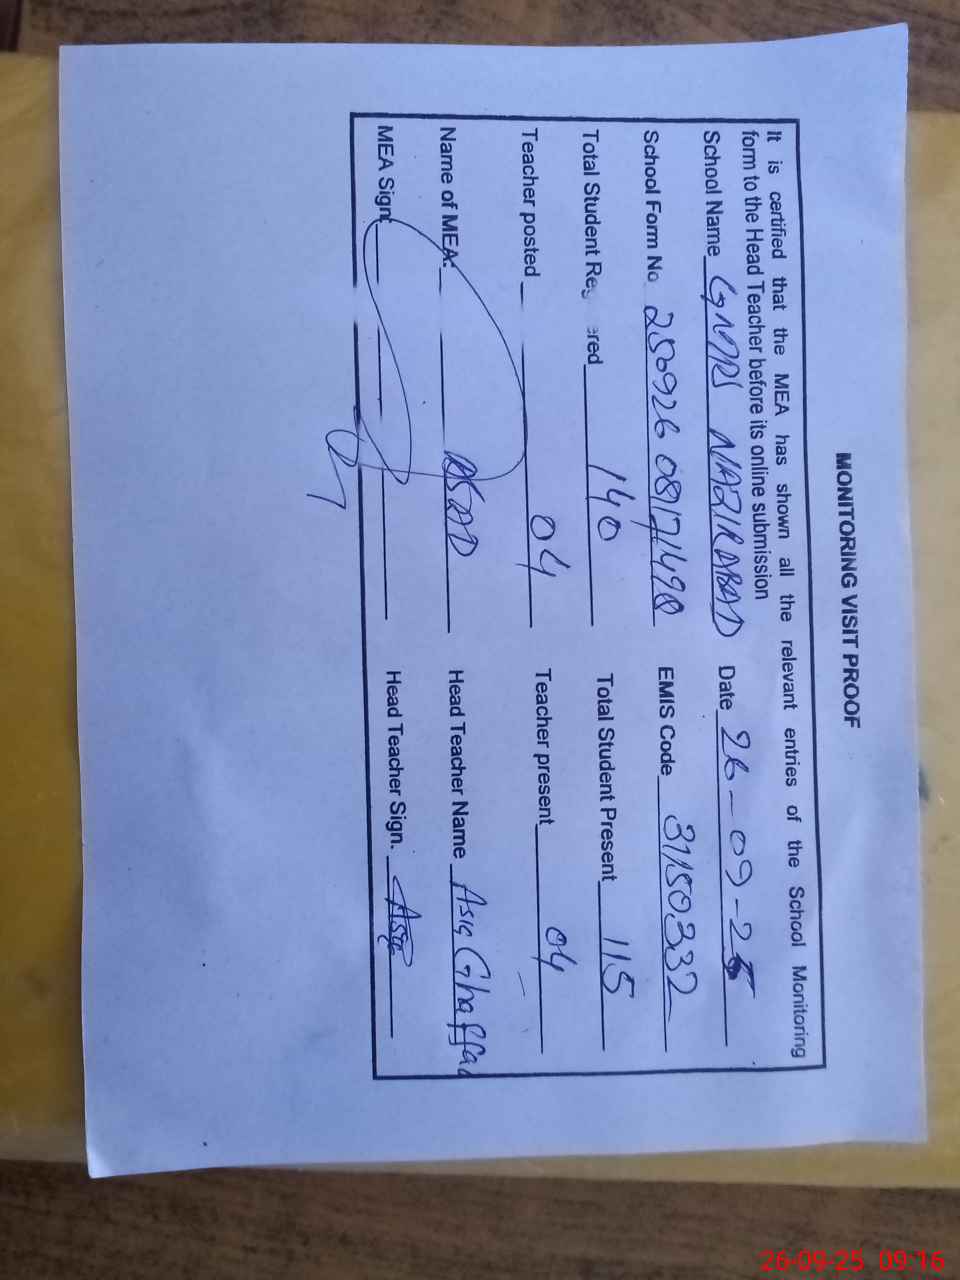 MONITORING VISIT PROOF
It is certified that the MEA has shown all the relevant entries of the School Monitoring
form to the Head Teacher before its online submission
School Name GMMPS NAZIRABAD Date 26-09-25
School Form No 250926 08171498 EMIS Code 31150332
Total Student Reg ered 140 Total Student Present 115
Teacher posted 04 Teacher present 04
Name of MEA: ASAD Head Teacher Name Asia Ghaffar
MEA Sign: Head Teacher Sign. Asia
26-09-25 09:16